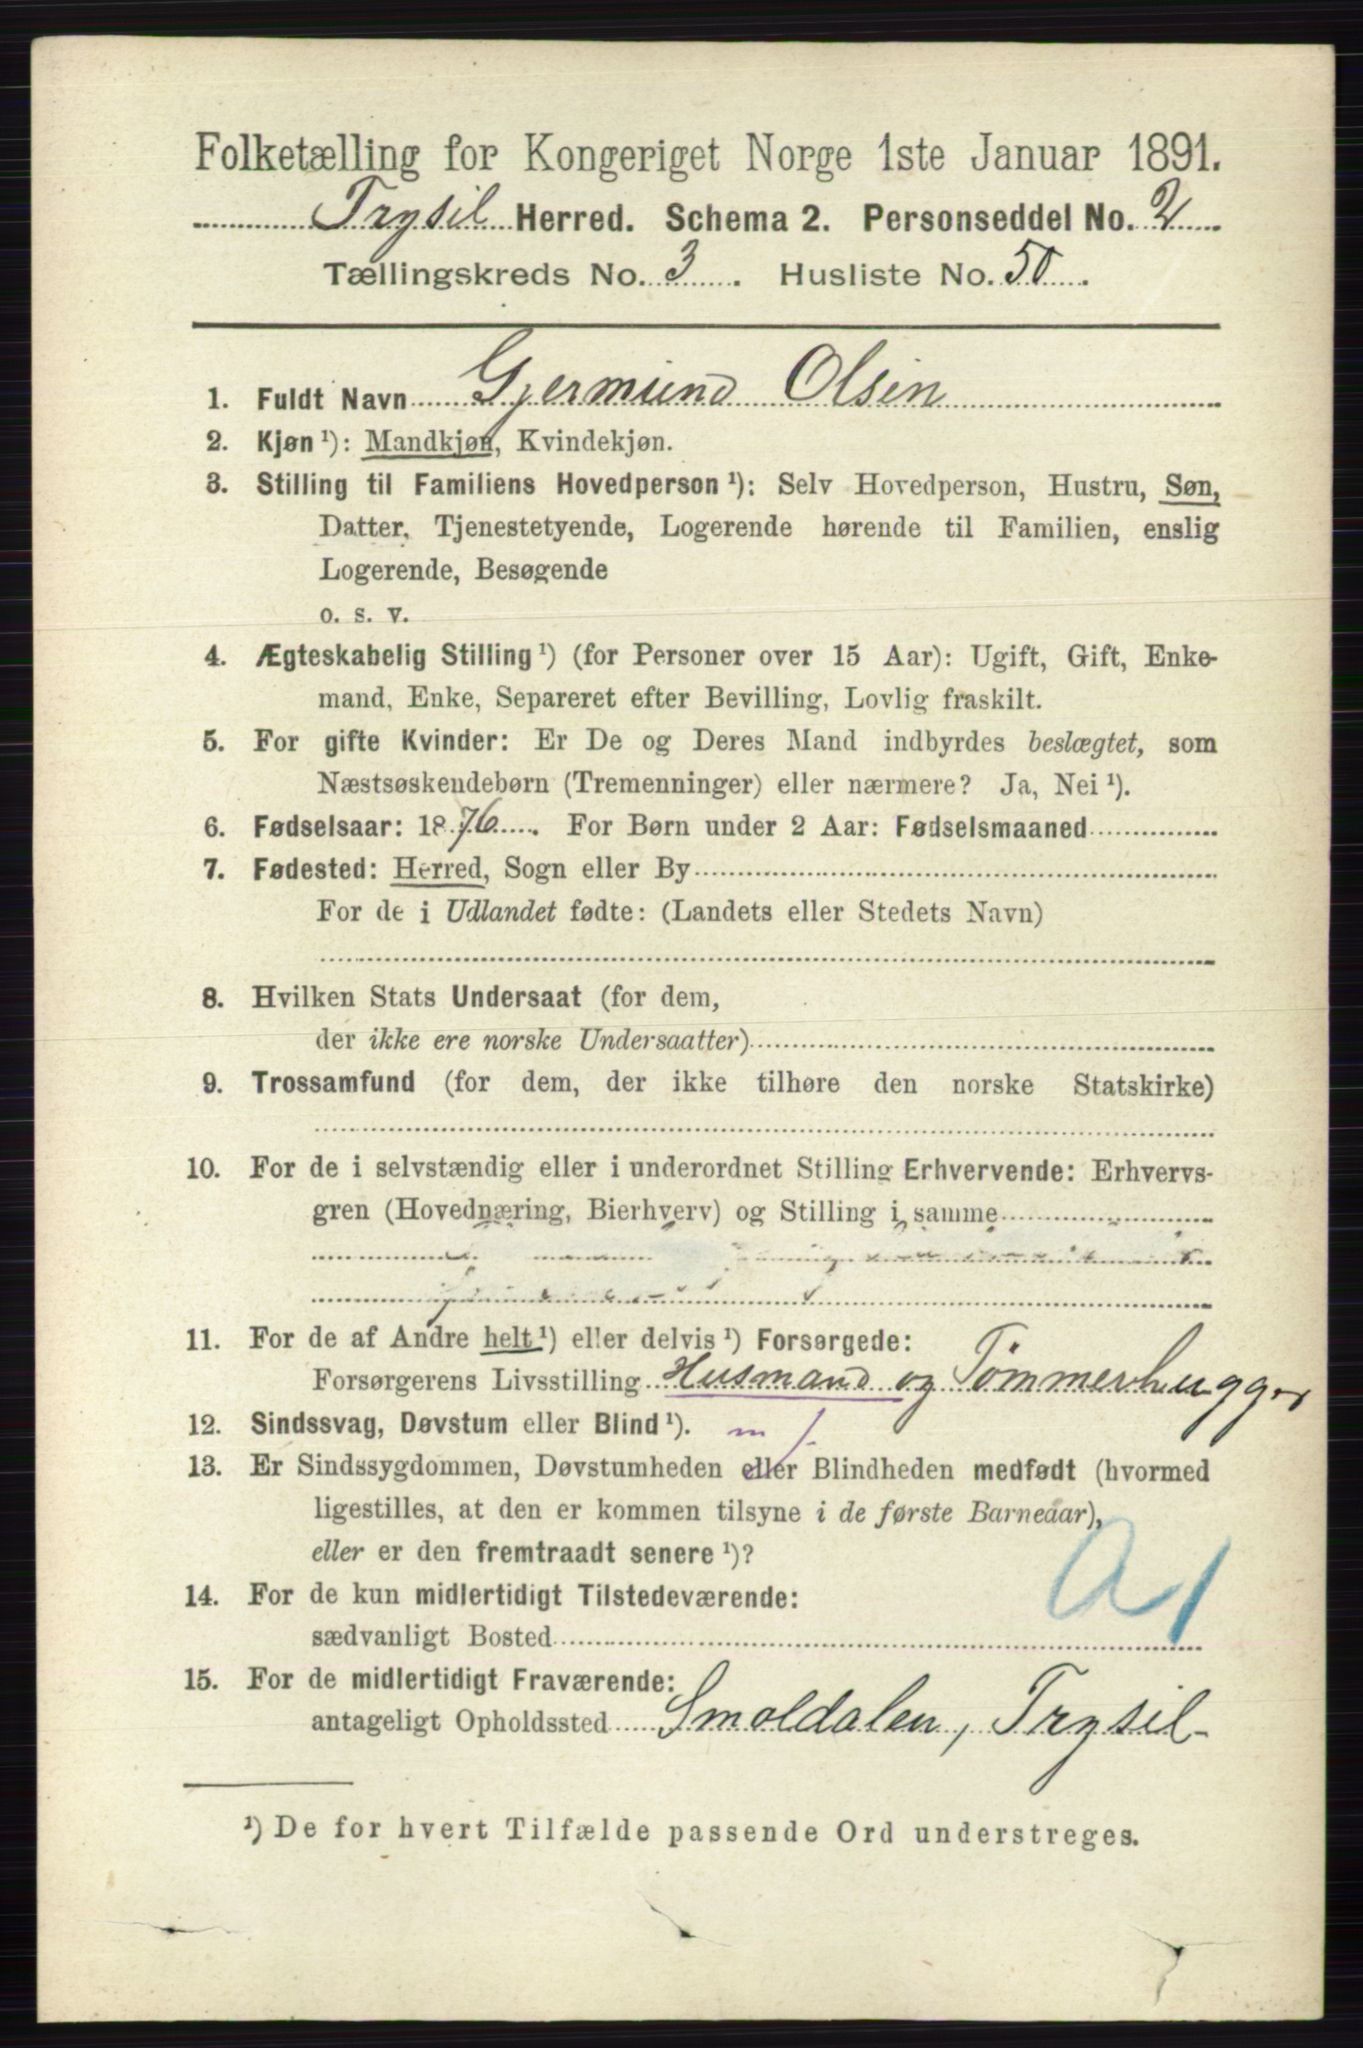 Folketælling for Kongeriget Norge 1ste Januar 1891.
Trysil Herred. Schema 2. Personseddel No. 2
Tællingskreds No. 3. Husliste No. 50.
1. Fuldt Navn Gjermund Olsen
2. Kjøn ¹): Mandkjøn, Kvindekjøn.
3. Stilling til Familiens Hovedperson ¹): Selv Hovedperson, Hustru, Søn,
Datter, Tjenestetyende, Logerende hørende til Familien, enslig
Logerende, Besøgende
o. s. v.
4. Ægteskabelig Stilling ¹) (for Personer over 15 Aar): Ugift, Gift, Enke-
mand, Enke, Separeret efter Bevilling, Lovlig fraskilt.
5. For gifte Kvinder: Er De og Deres Mand indbyrdes beslægtet, som
Næstsøskendebørn (Tremenninger) eller nærmere? Ja, Nei ¹).
6. Fødselsaar: 1876. For Børn under 2 Aar: Fødselsmaaned
7. Fødested: Herred, Sogn eller By
For de i Udlandet fødte: (Landets eller Stedets Navn)
8. Hvilken Stats Undersaat (for dem,
der ikke ere norske Undersaatter)
9. Trossamfund (for dem, der ikke tilhøre den norske Statskirke)
10. For de i selvstændig eller i underordnet Stilling Erhvervende: Erhvervs-
gren (Hovednæring, Bierhverv) og Stilling i samme
11. For de af Andre helt ¹) eller delvis ¹) Forsørgede:
Forsørgerens Livsstilling Husmand og Tømmerhugger
12. Sindssvag, Døvstum eller Blind ¹).
13. Er Sindssygdommen, Døvstumheden eller Blindheden medfødt (hvormed
ligestilles, at den er kommen tilsyne i de første Barneaar),
eller er den fremtraadt senere ¹)?
14. For de kun midlertidigt Tilstedeværende:
sædvanligt Bosted
15. For de midlertidigt Fraværende:
antageligt Opholdssted Smoldalen, Trysil
¹) De for hvert Tilfælde passende Ord understreges.